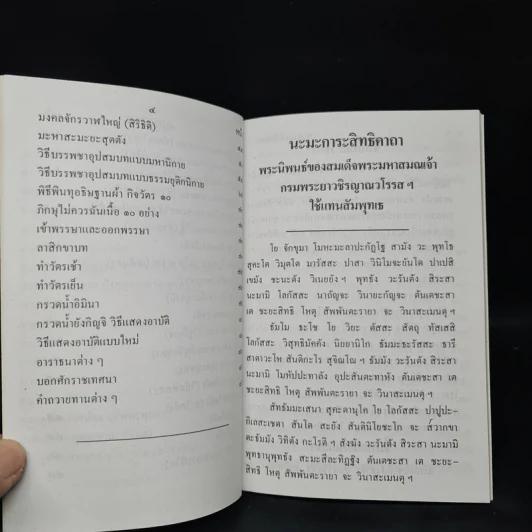 ๔
มงคลจักรวาฬใหญ่ (สิริธิติ)
มะหาสะมะยะสุตตัง
วิธีบรรพชาอุปสมบทแบบมหานิกาย
วิธีบรรพชาอุปสมบทแบบธรรมยุติกนิกาย
พิธีพินทุอธิษฐานผ้า กัจวัตร ๑๐
ภิกษุไม่ควรฉันเนื้อ ๑๐ อย่าง
เข้าพรรษาและออกพรรษา
ลาสิกขาบท
ทำวัตรเช้า
ทำวัตรเย็น
กรวดน้ำอิมินา
กรวดน้ำยังกิญจิ วิธีแสดงอาบัติ
วิธีแสดงอาบัติแบบใหม่
อาราธนาต่าง ๆ
บอกศักราชเทศนา
คำถวายทานต่าง ๆ
นะมะการะสิทธิคาถา
พระนิพนธ์ของสมเด็จพระมหาสมณเจ้า
กรมพระยาวชิรญาณวโรรส ฯ
ใช้แทนสัมพุทเธ
โย จักขุมา โมหะมะลาปะกัฏโฐ สามัง วะ พุทโธ
สุคะโต วิมุตโต มารัสสะ ปาสา วินิโมจะยันโต ปาเปสิ
เขมัง ชะนะตัง วิเนยยัง ฯ พุทธัง วะรันตัง สิระสา
นะมามิ โลกัสสะ นาถัญจะ วินายะกัญจะ ตันเตชะสา เต
ชะยะสิทธิ โหตุ สัพพันตะรายา จะ วินาสะเมนตุ ฯ
ธัมโม ธะโช โย วิยะ ตัสสะ สัตถุ ทัสเสสิ
โลกัสสะ วิสุทธิมัคคัง นิยยานิโก ธัมมะธะรัสสะ ธารี
สาตาวะโห สันติกะโร สุจิณโณ ฯ ธัมมัง วะรันตัง สิระสา
นะมามิ โมหัปปะทาลัง อุปะสันตะทาหัง ตันเตชะสา เต
ชะยะสิทธิ โหตุ สัพพันตะรายา จะ วินาสะเมนตุ ฯ
สัทธัมมะเสนา สุคะตานุโค โย โลกัสสะ ปาปูปะ-
กิเลสะเชตา สันโต สะยัง สันตินิโยชะโก จะ ส๎วากขา
ตะธัมมัง วิทิตัง กะโรติ ฯ สังฆัง วะรันตัง สิระสา นะมามิ
พุทธานุพุทธัง สะมะสีละทิฏฐิง ตันเตชะสา เต ชะยะ-
สิทธิ โหตุ สัพพันตะรายา จะ วินาสะเมนตุ ฯ